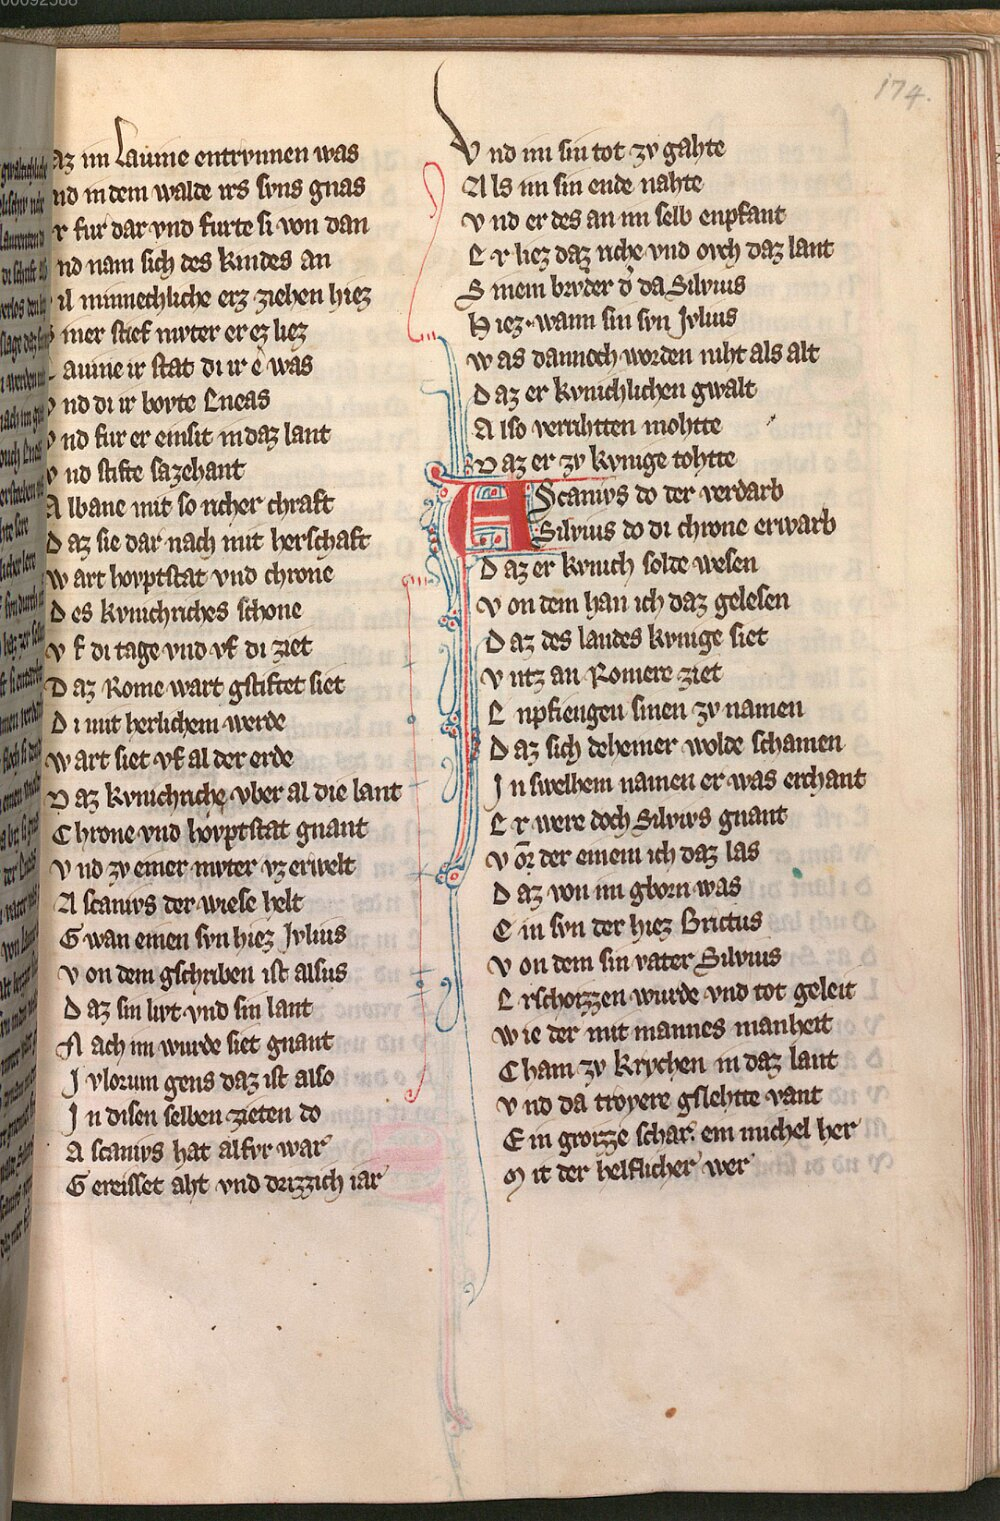 174.
az im Lauine entrvnnen was
nd in dem walde irs svns gnas
r fur dar vnd furte si von dan
nd nam sich des kindes an
il minnechliche erz ziehen hiez
iner stief mvter er ez liez
auine ir stat di ir e was
nd di ir bovte Eneas
nd fur er einsit in daz lant
v nd stifte sazehant
A lbane mit so richer chraft
D az sie dar nach mit herschaft
w art hovptstat vnd chrone
D es kvnichriches schone
v f di tage vnd vf di ziet
D az Rome wart gstiftet siet
D i mit herlichem werde
w art siet vf al der erde
D az kvnichriche vber al die lant
C hrone vnd hovptstat gnant
V nd zv einer mvter vz erwelt
A scanivs der wiese helt
G wan einen svn hiez Jvlius
v on dem gschriben ist alsus
D az sin livt vnd sin lant
N ach im wurde siet gnant
J vlorum gens daz ist also
J n disen selben zieten do
A scanivs hat alfvr war
G ereisset aht vnd drizzich iar
V nd im sin tot zv gahte
A ls im sin ende nahte
v nd er des an im selb enpfant
E r liez daz riche vnd ovch daz lant
S inem brvder d da Silvius
H iez. wann sin svn Jvlius
w as dannoch worden niht als alt
D az er kvnichlichen gwalt
A lso verrihtten mohtte
D az er zv kvnige tohtte
A Scanivs do der verdarb
Silvius do di chrone erwarb
D az er kvnich solde wesen
v on dem han ich daz gelesen
D az des landes kvnige siet
v ntz an Romere ziet
E npfiengen sinen zv namen
D az sich deheiner wolde schamen
J n swelhem namen er was erchant
E r were doch Silvivs gnant
v or der einem ich daz las
D az von im gborn was
E in svn der hiez Brictus
v on dem sin vater Silvius
E rschozzen wurde vnd tot geleit
w ie der mit mannes manheit
C ham zv krychen in daz lant
v nd da troyere gslehtte vant
E in grozze schar. ein michel her
M it der helflicher wer